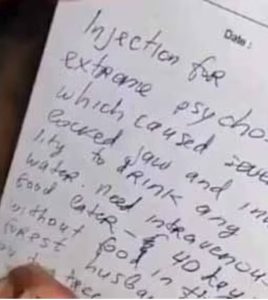 Date:
Injection for
extreme psycho
which caused seve
locked jaw and in
lity to drink any
water. need intravenou
food later - 40 key
without food in th
forest husba